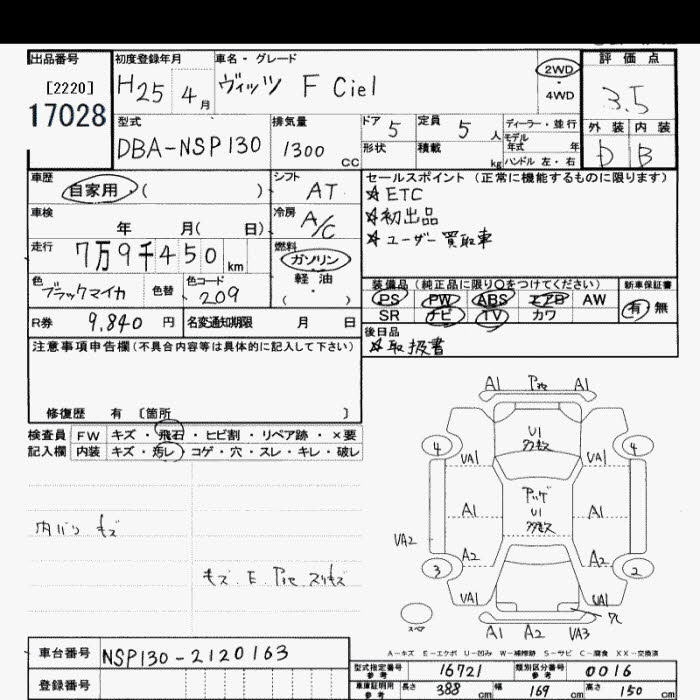 出品番号 初度登録年月 車名・グレード 評価点
[2220] H25 4月 ヴィッツ F Ciel 2WD ・ 4WD 3.5
17028
型式 排気量 ドア 5 定員 5人 ディーラー・並行 外装 内装
DBA-NSP130 1300cc 形状 積載 kg モデル年式 年 ハンドル 左・右 D B
車歴 自家用 ( ) シフト AT セールスポイント (正常に機能するものに限ります)
☆ETC
車検 年 月( 日) 冷房 A/C ☆初出品
走行 7万9千450km 燃料 ガソリン ・ 軽油 ・ ( ) ☆ユーザー買取車
色 ブラックマイカ 色替 色コード 209
装備品 (純正品に限り〇をつけてください) 新車保証書
PS PW ABS エアB AW 有・無
SR ナビ TV カワ
R券 9,840円 名変通知期限 月 日 後日品
☆取扱書
注意事項申告欄(不具合内容等は具体的に記入して下さい)
修復歴 有 〔箇所 〕
検査員 FW キズ・飛石・ヒビ割・リペア跡・×要
記入欄 内装 キズ・汚レ・コゲ・穴・スレ・キレ・破レ
A1 A1
U1
4 4
VA1 VA1
A1 U1 A1
内バリ キズ
VA2
A2 A2
3 2
キズ E
VA1 VA1
スペア A1 A2 VA3
A-キズ E-エクボ U-凹み W-補修跡 S-サビ C-腐食 XX-交換済
車台番号 NSP130-2120163
登録番号
型式指定番号 参考 16721 類別区分番号 参考 0016
車庫証明用 参考 長さ 388cm 幅 169cm 高さ 150cm